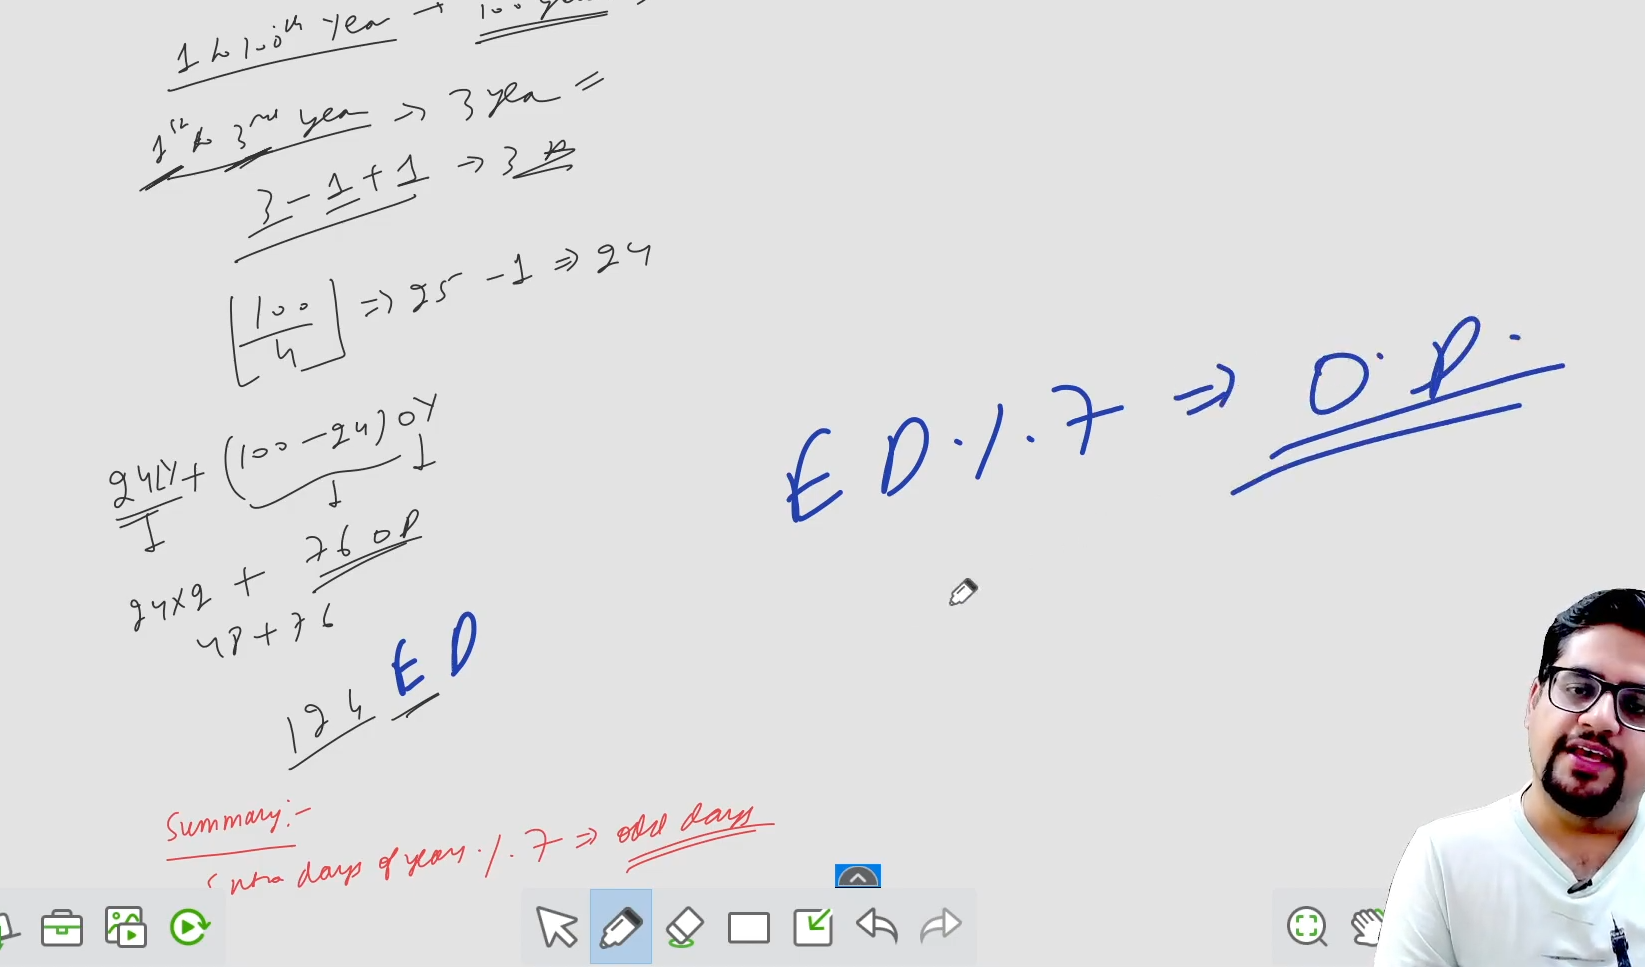 1 to 100th year → 100 year
1st to 3rd year => 3 year =
3 - 1 + 1 => 3
[100/4] => 25 - 1 => 24
24LY + (100 - 24) OY
24x2 + 76 OD
48 + 76
124 ED
ED % 7 => O.D.
Summary:-
Extra days of years % 7 => odd days